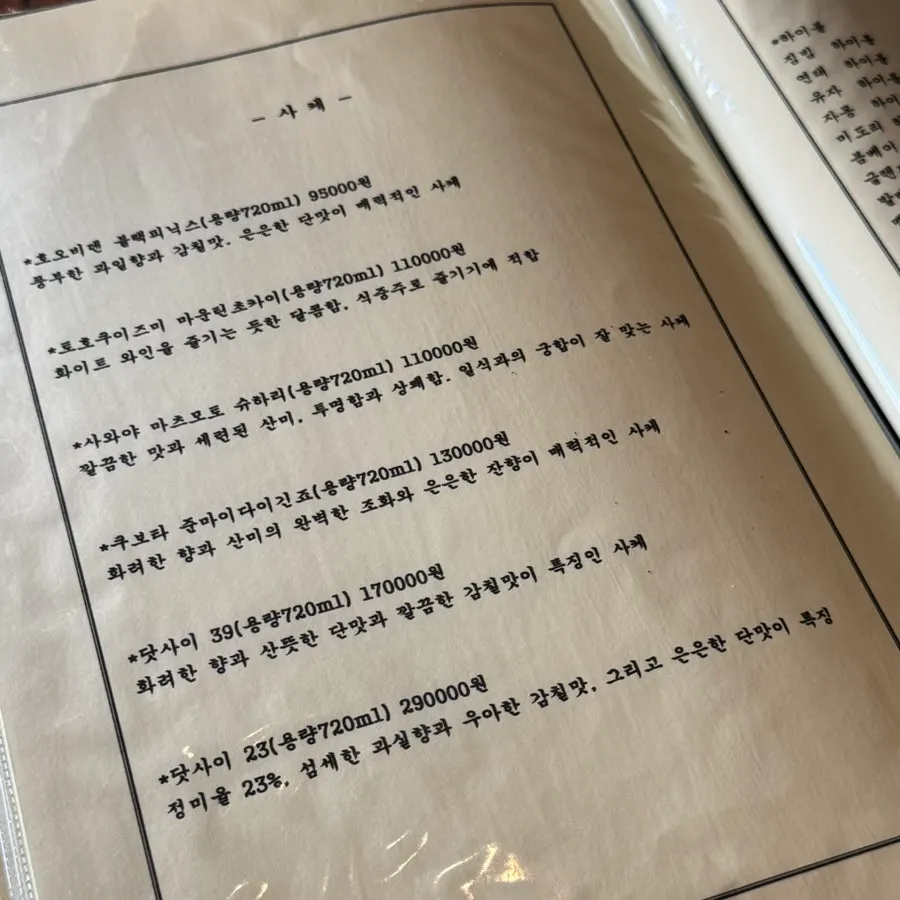 - 사케 -
*호오비덴 블랙피닉스(용량720ml) 95000원
풍부한 과일향과 감칠맛. 은은한 단맛이 매력적인 사케
*토호쿠이즈미 마운틴초카이(용량720ml) 110000원
화이트 와인을 즐기는 듯한 달콤함. 식중주로 즐기기에 적합
*사와야 마츠모토 슈하리(용량720ml) 110000원
깔끔한 맛과 세련된 산미. 투명함과 상쾌함. 일식과의 궁합이 잘 맞는 사케
*쿠보타 준마이다이긴죠(용량720ml) 130000원
화려한 향과 산미의 완벽한 조화와 은은한 잔향이 매력적인 사케
*닷사이 39(용량720ml) 170000원
화려한 향과 산뜻한 단맛과 깔끔한 감칠맛이 특징인 사케
*닷사이 23(용량720ml) 290000원
정미율 23%. 섬세한 과실향과 우아한 감칠맛. 그리고 은은한 단맛이 특징
*하이볼
짐빔 하이볼
연태 하이볼
유자 하이볼
자몽 하이
미도리
봄베이